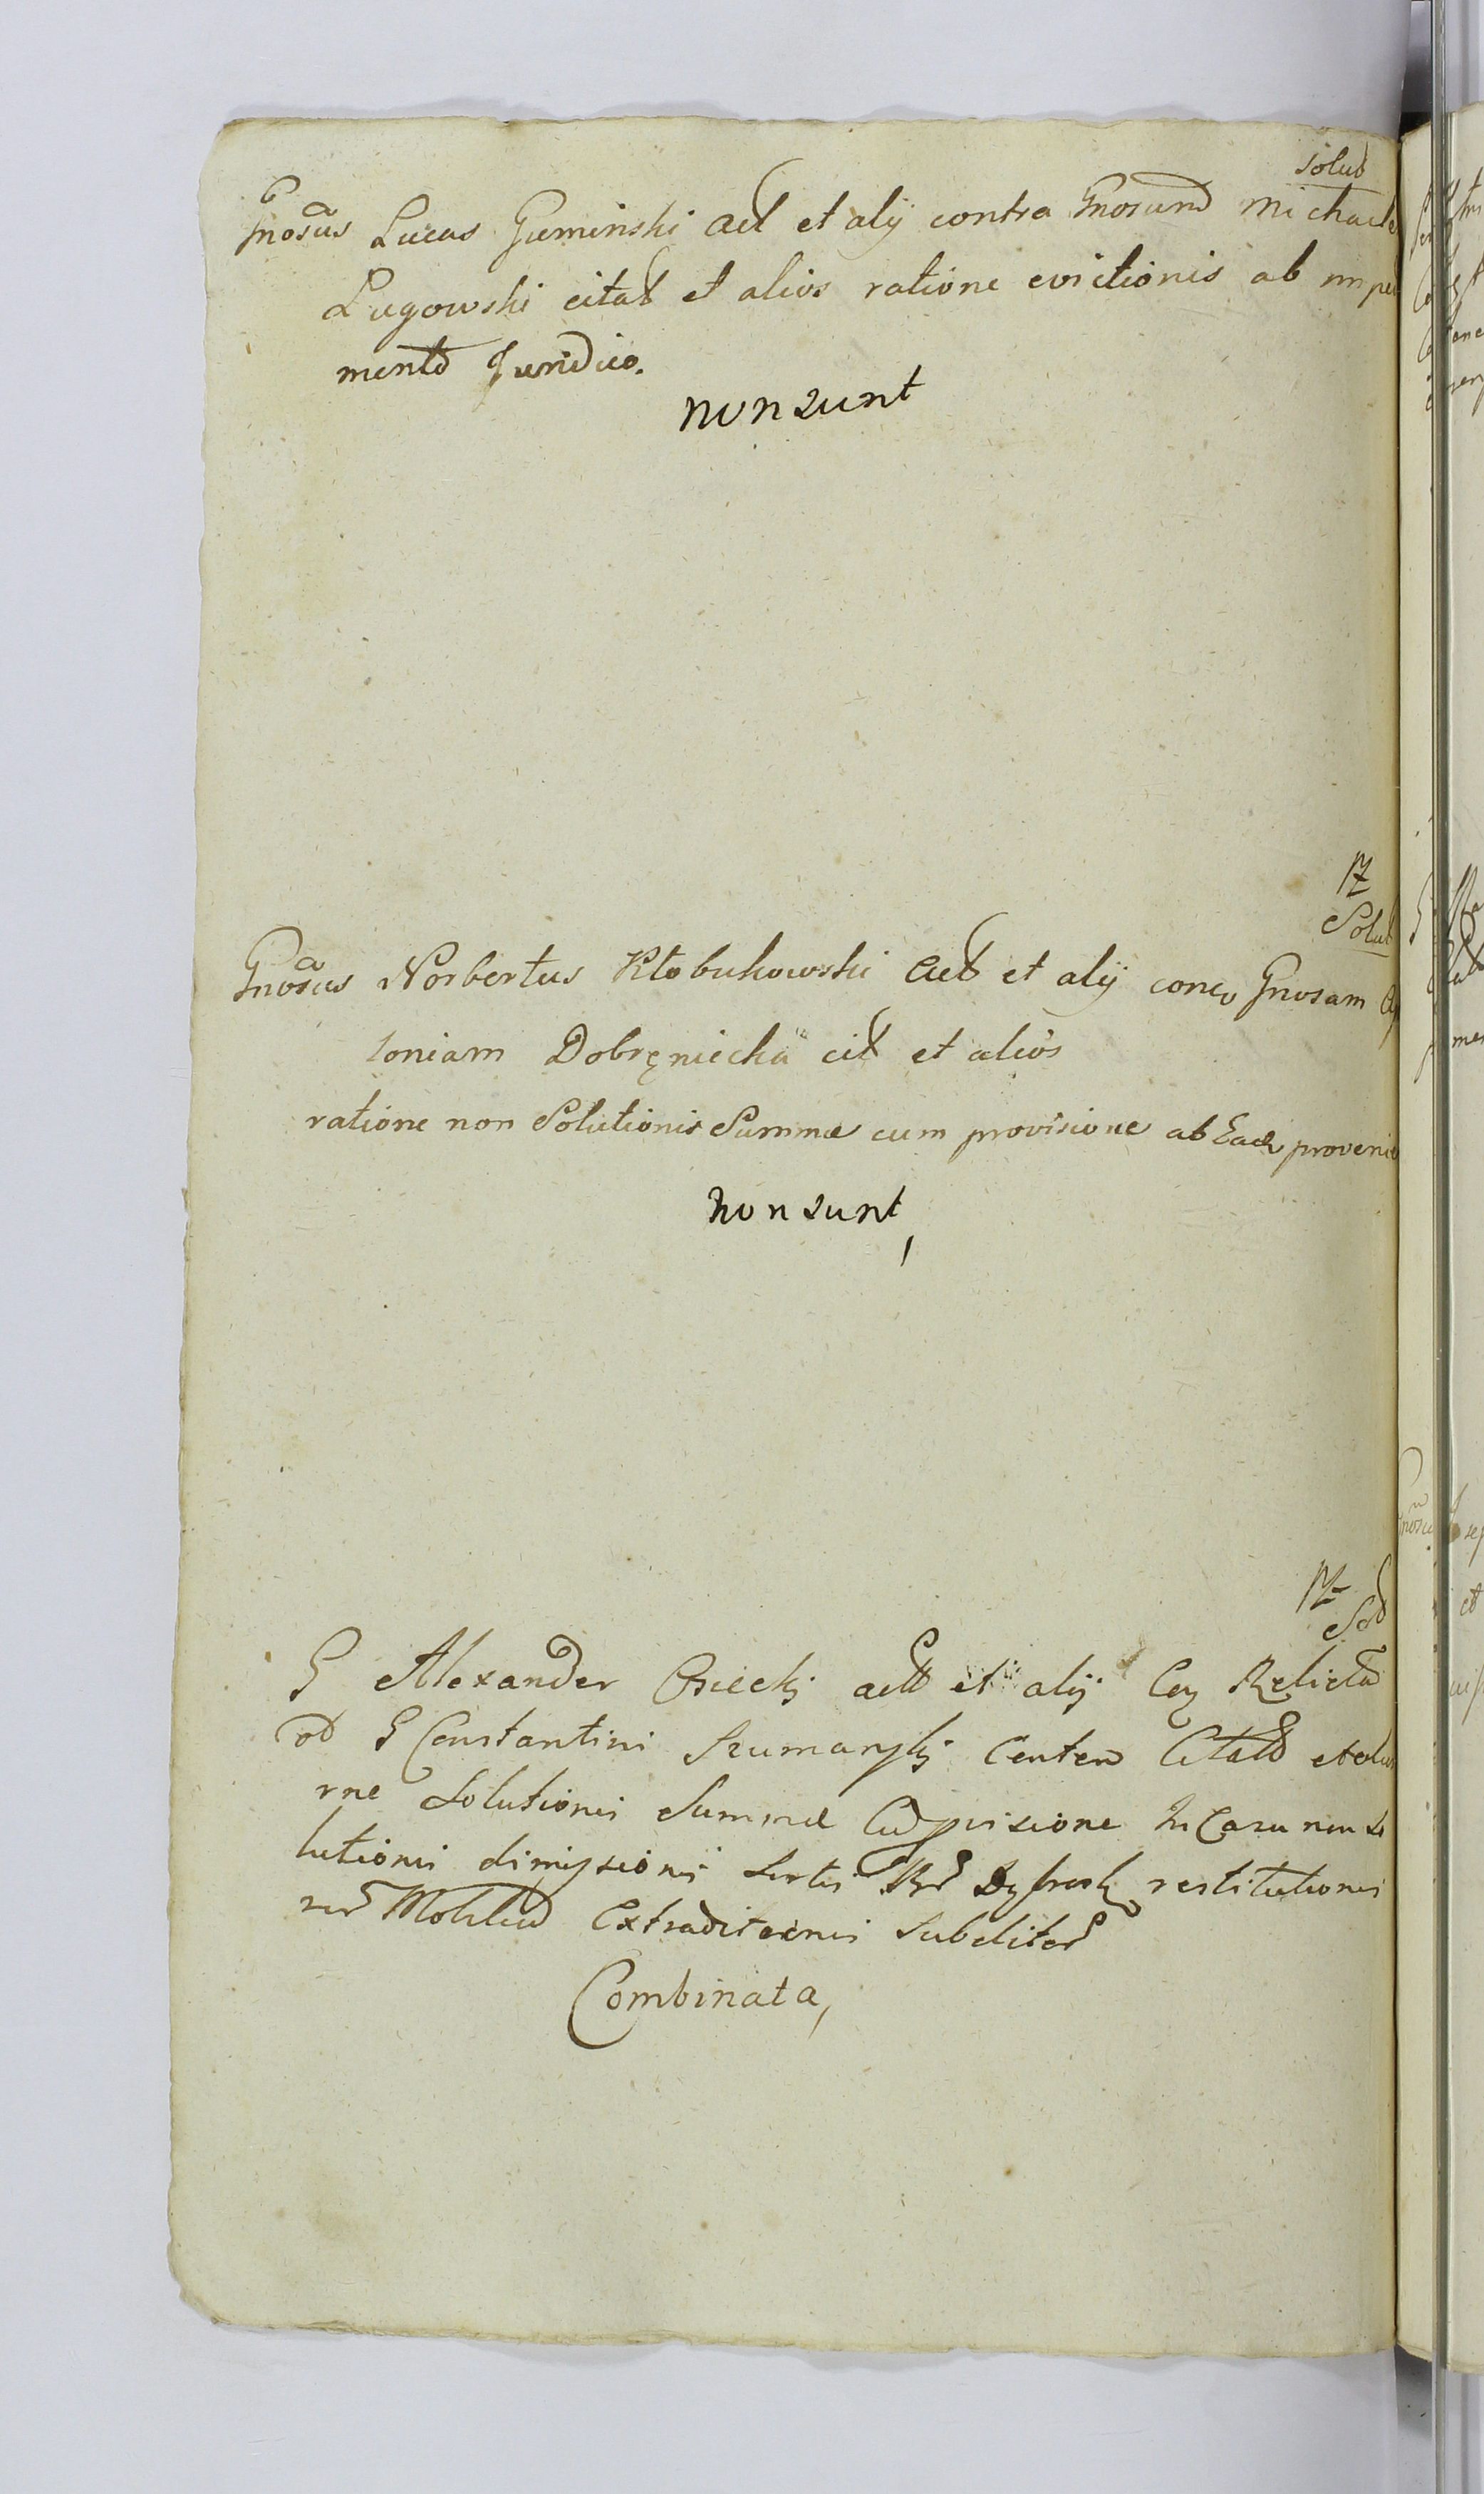 solut
Gnosus Lucas Guminski act et alij contra Gnosum Michaele
Lugowski citat et alios ratione evictionis ab impe
mento Juridico.
non sunt
Solut
Gnosus Norbertus Kłobukowski act et alij con Gnosam
toniam Dobręniecka cit et alios
ratione non Solutionis Summæ cum provisione ab Ead proveni
non sunt,
G Alexander Osiecki act et alij Relicta
G Constantini citat et alios
rne Solutionis Summæ Cu pvisione In Casu non So
lutionis dimissionis Sortis restitutionis
Extraditionis Subditor
Combinata,